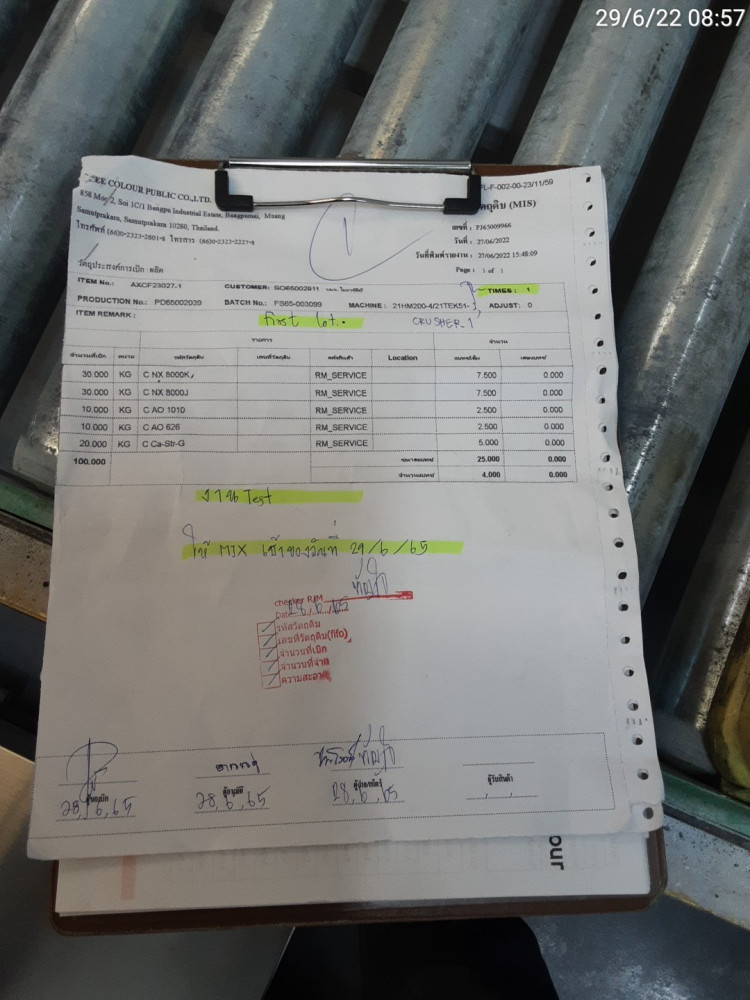 29/6/22 08:57
EE COLOUR PUBLIC CO.,LTD.
PL-F-002-00-23/11/59
858 Moo 2, Soi 1C/1 Bangpu Industrial Estate, Bangpumai, Muang
Samutprakarn, Samutprakarn 10280, Thailand.
โทรศัพท์ (6630-2323-2601-8 โทรสาร (6630-2323-2227-8
ตถุดิบ (MIS)
เลขที่ : PJ65009966
วันที่ : 27/06/2022
วันที่พิมพ์รายงาน : 27/06/2022 15:48:09
Page : 1 of 1
วัตถุประสงค์การเบิก : ผลิต
ITEM No.: AXCF23027-1 CUSTOMER: SO65002911 TIMES: 1
PRODUCTION No.: PD65002039 BATCH No.: FS65-003099 MACHINE : 21HM200-4/21TEK51- ADJUST: 0
ITEM REMARK : First lot.. CRUSHER-1
รายการ จำนวน
จำนวนที่เบิก หน่วย รหัสวัตถุดิบ เลขที่วัตถุดิบ คลังสินค้า Location แบทช์เต็ม เศษแบทช์
30.000 KG C NX 8000K RM_SERVICE 7.500 0.000
30.000 KG C NX 8000J RM_SERVICE 7.500 0.000
10.000 KG C AO 1010 RM_SERVICE 2.500 0.000
10.000 KG C AO 626 RM_SERVICE 2.500 0.000
20.000 KG C Ca-Str-G RM_SERVICE 5.000 0.000
100.000 ขนาดแบทช์ 25.000 0.000
จำนวนแบทช์ 4.000 0.000
งาน Test
ให้ MIX เช้าของวันที่ 29/6/65
checker R/M
Date 28/6/65
รหัสวัตถุดิบ
เลขที่วัตถุดิบ(fifo)
จำนวนที่เบิก
จำนวนที่จ่าย
ความสะอาด
ผู้อนุมัติ ผู้รับสินค้า
28,6,65 28,6,65 28,6,65
our